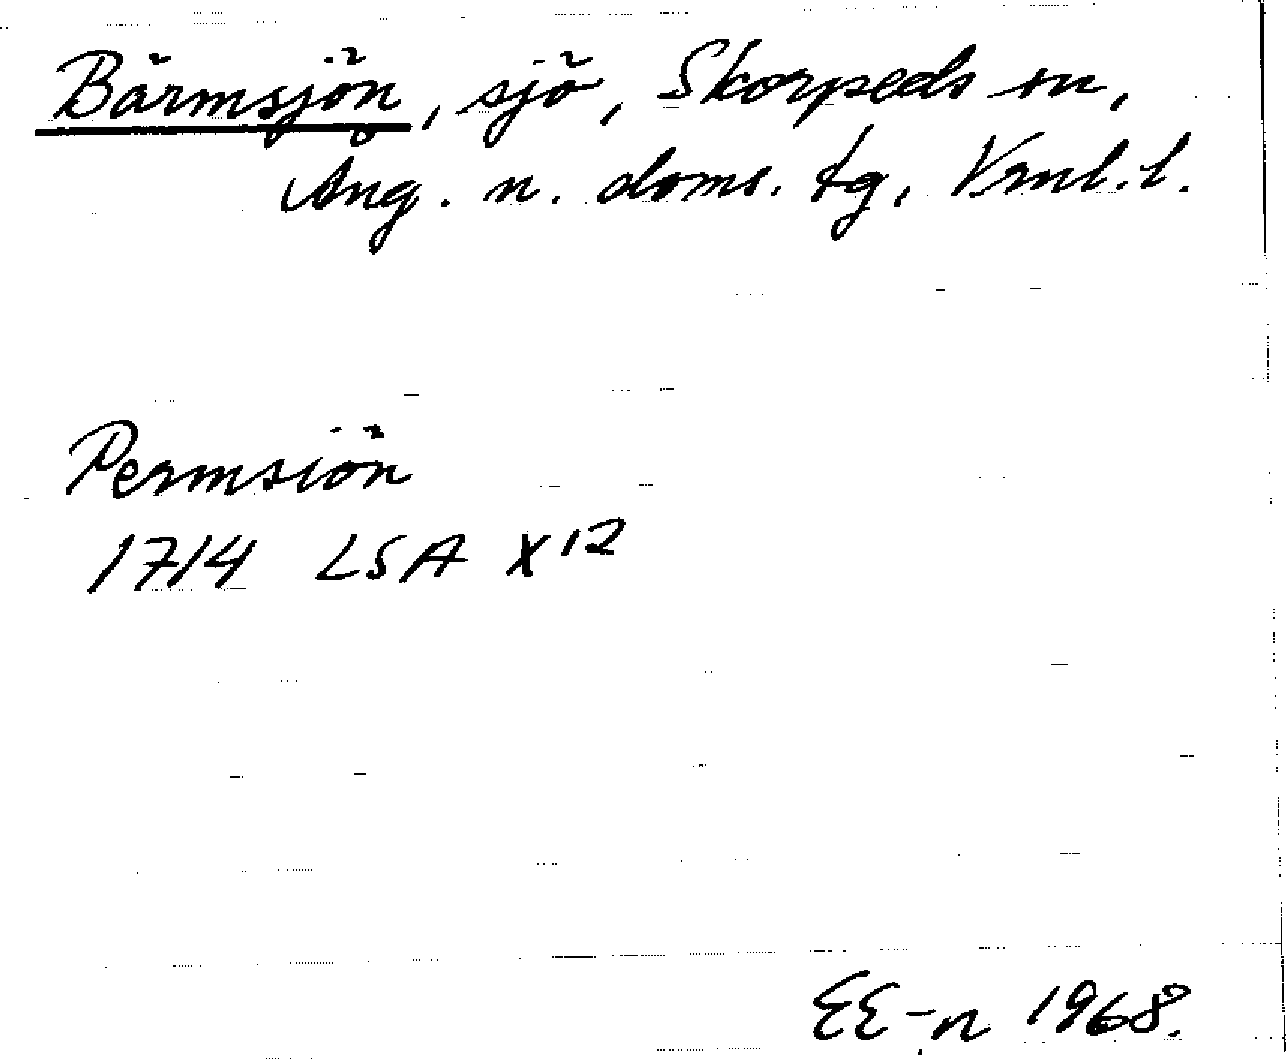 Bärmsjön, sjö, Skorpeds sn,
Ång. n. doms. tg, Vrnl. l.
Permsiön
1714 LSA X12
EE-n 1968.